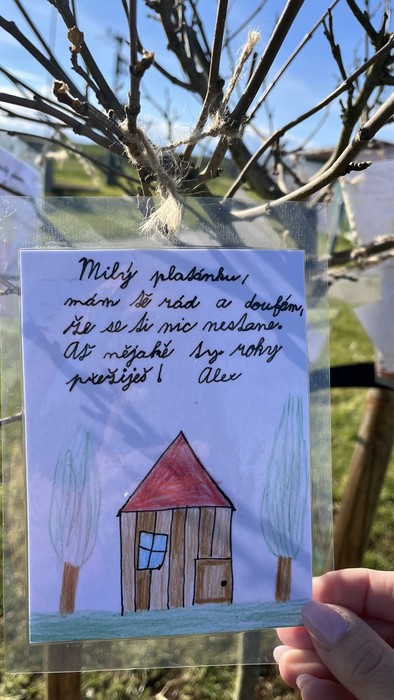 Milý platánku,
mám tě rád a doufám,
že se ti nic nestane.
Ať nějaké ty roky
přežiješ! Alex